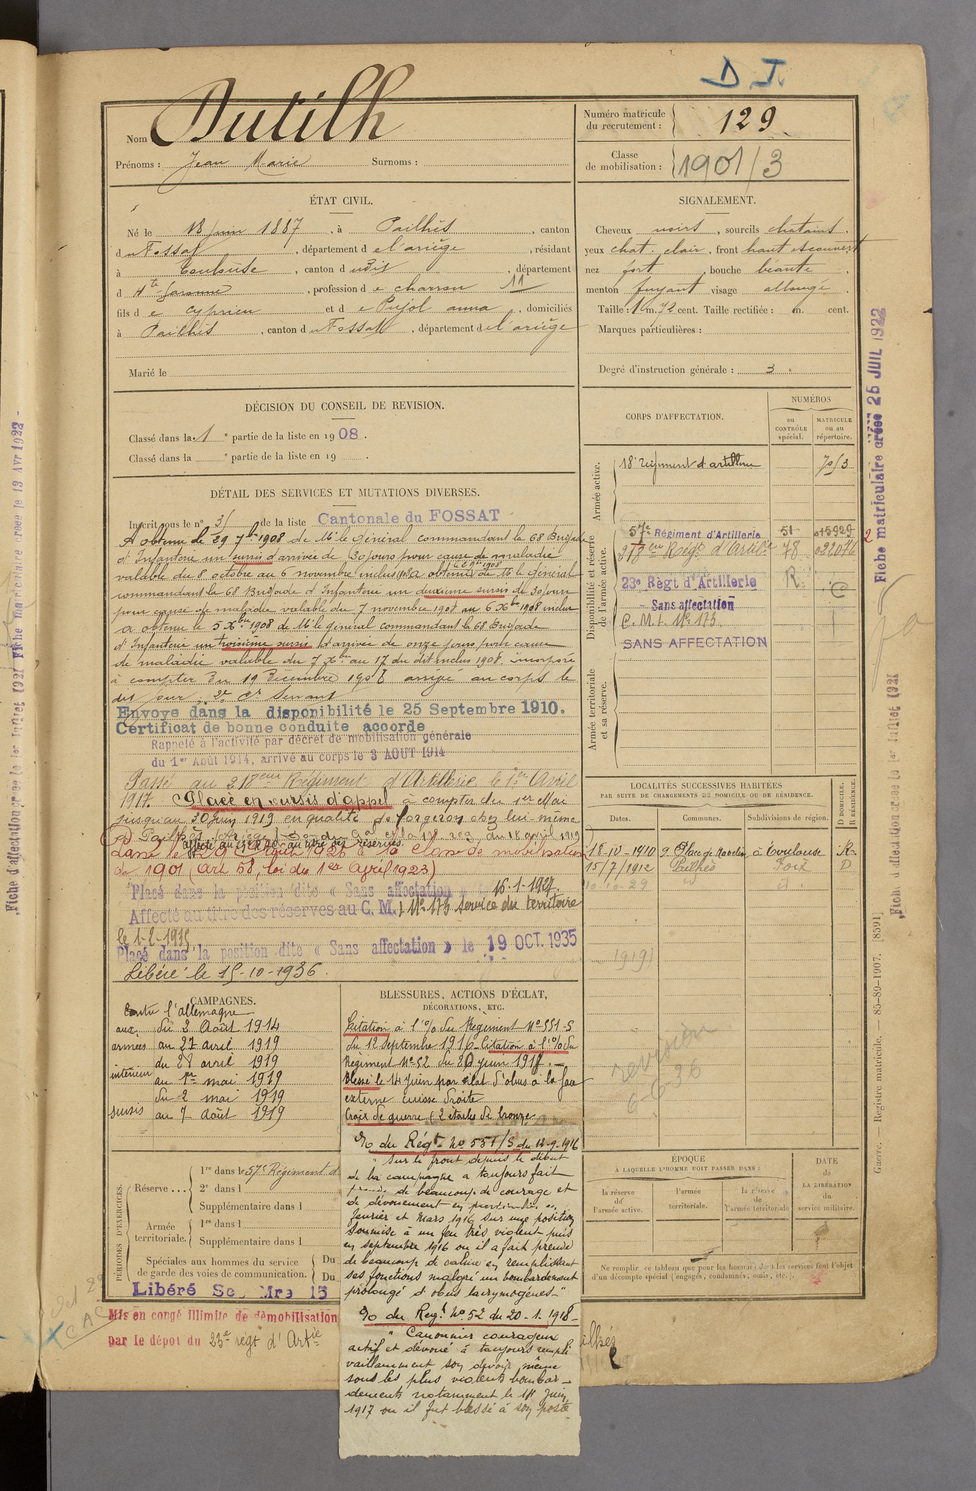 D J.
Nom Dutilh
Prénoms : Jean Marie Surnoms :
Numéro matricule du recrutement : 129.
Classe de mobilisation : 1901/3
ÉTAT CIVIL.
Né le 18 juin 1887, à Pailhès, canton
du Fossat, département de l'ariège, résidant
à Toulouse, canton du dit, département
d Hte Garonne, profession de charron 11
fils de Cyprien et de Pujol anna, domiciliés
à Pailhès, canton du Fossat, département de l'ariège
Marié le
SIGNALEMENT.
Cheveux noirs, sourcils chatains.
yeux chat. clair, front haut et couvert
nez fort, bouche béante.
menton fuyant visage allongé.
Taille : 1 m. 72 cent. Taille rectifiée : m. cent.
Marques particulières :
Degré d'instruction générale : 3.
DÉCISION DU CONSEIL DE REVISION.
Classé dans la 1e partie de la liste en 1908.
Classé dans la e partie de la liste en 19 .
DÉTAIL DES SERVICES ET MUTATIONS DIVERSES.
Inscrit sous le n° 31 de la liste Cantonale du FOSSAT
A obtenu le 29 7bre 1908 de Mr le Général commandant la 68 Brigade
d'Infanterie un sursis d'arrivée de 30 jours pour cause de maladie
valable du 8 octobre au 6 novembre inclus 1908 a obtenu de Mr le Général
commandant la 68 Brigade d'Infanterie un deuxième sursis de 30 jours
pour cause de maladie valable du 7 novembre 1908 au 6 Xbre 1908 inclus
a obtenu le 5 Xbre 1908 de Mr le général commandant la 68 Brigade
d'Infanterie un troisième sursis d'arrivée de onze jours pour cause
de maladie valable du 7 Xbre au 17 du dit inclus 1908. incorporé
à compter du 19 Décembre 1908 arrivé au corps le
dit jour, 2e Cr Servant
Envoyé dans la disponibilité le 25 Septembre 1910.
Certificat de bonne conduite accordé
Rappelé à l'activité par décret de mobilisation générale
du 1er Août 1914, arrivé au corps le 3 AOUT 1914
Passé au 218eme Régiment d'Artillerie le 1er Avril
1917. Placé en sursis d'appel à compter du 1er Mai
jusqu'au 30 juin 1919 en qualité de forgeron chez lui-même
à Pailhès, Ariège
du 18 avril 1919
affecté au
au titre des réserves.
la classe de mobilisation
de 1901 (art 58, loi du 1er Avril 1923)
Placé dans la position dite « Sans affectation » 16-1-1927.
Affecté au titre des réserves au C. M. I. N° 173 service du territoire
le 1-2-1935
Placé dans la position dite « Sans affectation » le 19 OCT. 1935
Libéré le 15-10-1936.
CORPS D'AFFECTATION.
NUMÉROS
au contrôle spécial.
matricule ou au répertoire.
Armée active.
18e régiment d'artillerie
Disponibilité et réserve de l'armée active.
57e Régiment d'Artillerie 51
218eme Régt d'Artilie 78
23e Régt d'Artillerie R
Sans affectation
C.M.I. N° 173.
SANS AFFECTATION
Armée territoriale et sa réserve.
LOCALITÉS SUCCESSIVES HABITÉES
PAR SUITE DE CHANGEMENTS DE DOMICILE OU DE RÉSIDENCE.
Dates. Communes. Subdivisions de région. D DOMICILE. R RÉSIDENCE.
18-10-1910 Toulouse R.
15/7/1912 Pailhès Foix D
10-10-29 d
1919
revision
6-6-36
CAMPAGNES.
Contre l'allemagne
aux armées du 3 Août 1914
au 27 avril 1919
intérieur du 28 avril 1919
au 1er mai 1919
sursis du 2 mai 1919
au 7 Août 1919
BLESSURES, ACTIONS D'ÉCLAT,
DÉCORATIONS, ETC.
Citation à l'o/ du Régiment N° 551-S
du 12 Septembre 1916. Citation à l'o/ du
Régiment N° 52 du 20 juin 1918.
Blessé le 14 Juin par éclat d'obus à la face
externe cuisse droite
Croix de guerre (2 étoiles de bronze
O du Régt N° 551/S du 12-9-1916
"Sur le front depuis le début
de la campagne a toujours fait
preuve de beaucoup de courage et
de dévouement en particulier
février et Mars 1916 sur une position
soumise à un feu très violent puis
en septembre 1916 où il a fait preuve
de beaucoup de calme en remplissant
ses fonctions malgré un bombardement
prolongé d'obus lacrymogènes"
O du Régt N° 52 du 20-1-1918-
"Canonnier courageux
actif et dévoué a toujours rempli
vaillamment son devoir même
sous les plus violents bombar-
dements notamment le 14 Juin
1917 où il fut blessé à son poste
PÉRIODES D'EXERCICES.
Réserve.... 1re dans le 57e Régiment d
2e dans l
Supplémentaire dans l
Armée territoriale. 1re dans l
Supplémentaire dans l
Spéciales aux hommes du service de garde des voies de communication. Du
Du
Libéré Sc Mre 13
Mis en congé illimité de démobilisation
par le dépôt du 23e régt d'Artie
ÉPOQUE
À LAQUELLE L'HOMME DOIT PASSER DANS :
la réserve de l'armée active.
l'armée territoriale.
la réserve de l'armée territoriale
DATE de LA LIBÉRATION du service militaire.
Ne remplir ce tableau que pour les hommes dont les services font l'objet
d'un décompte spécial (engagés, condamnés, omis, etc.).
Fiche matriculaire créée 25 JUIL 1922
Guerre. — Registre matricule. — 85-89-1907. [8591]